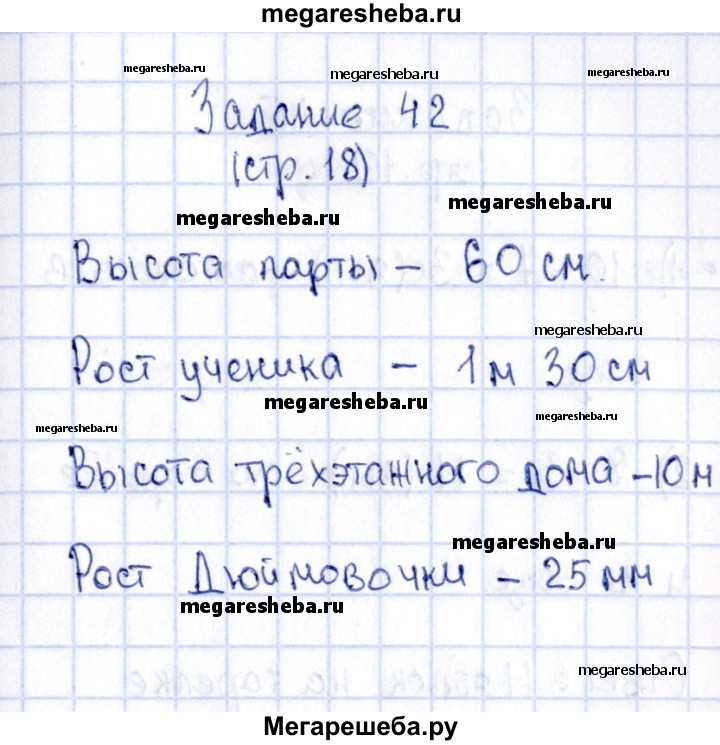 megaresheba.ru
megaresheba.ru
megaresheba.ru
megaresheba.ru
Задание 42
(стр. 18)
megaresheba.ru
megaresheba.ru
Высота парты – 60 см.
megaresheba.ru
Рост ученика – 1 м 30 см
megaresheba.ru
megaresheba.ru
megaresheba.ru
Высота трёхэтажного дома – 10 м
megaresheba.ru
Рост Дюймовочки – 25 мм
megaresheba.ru
megaresheba.ru
Мегарешеба.ру